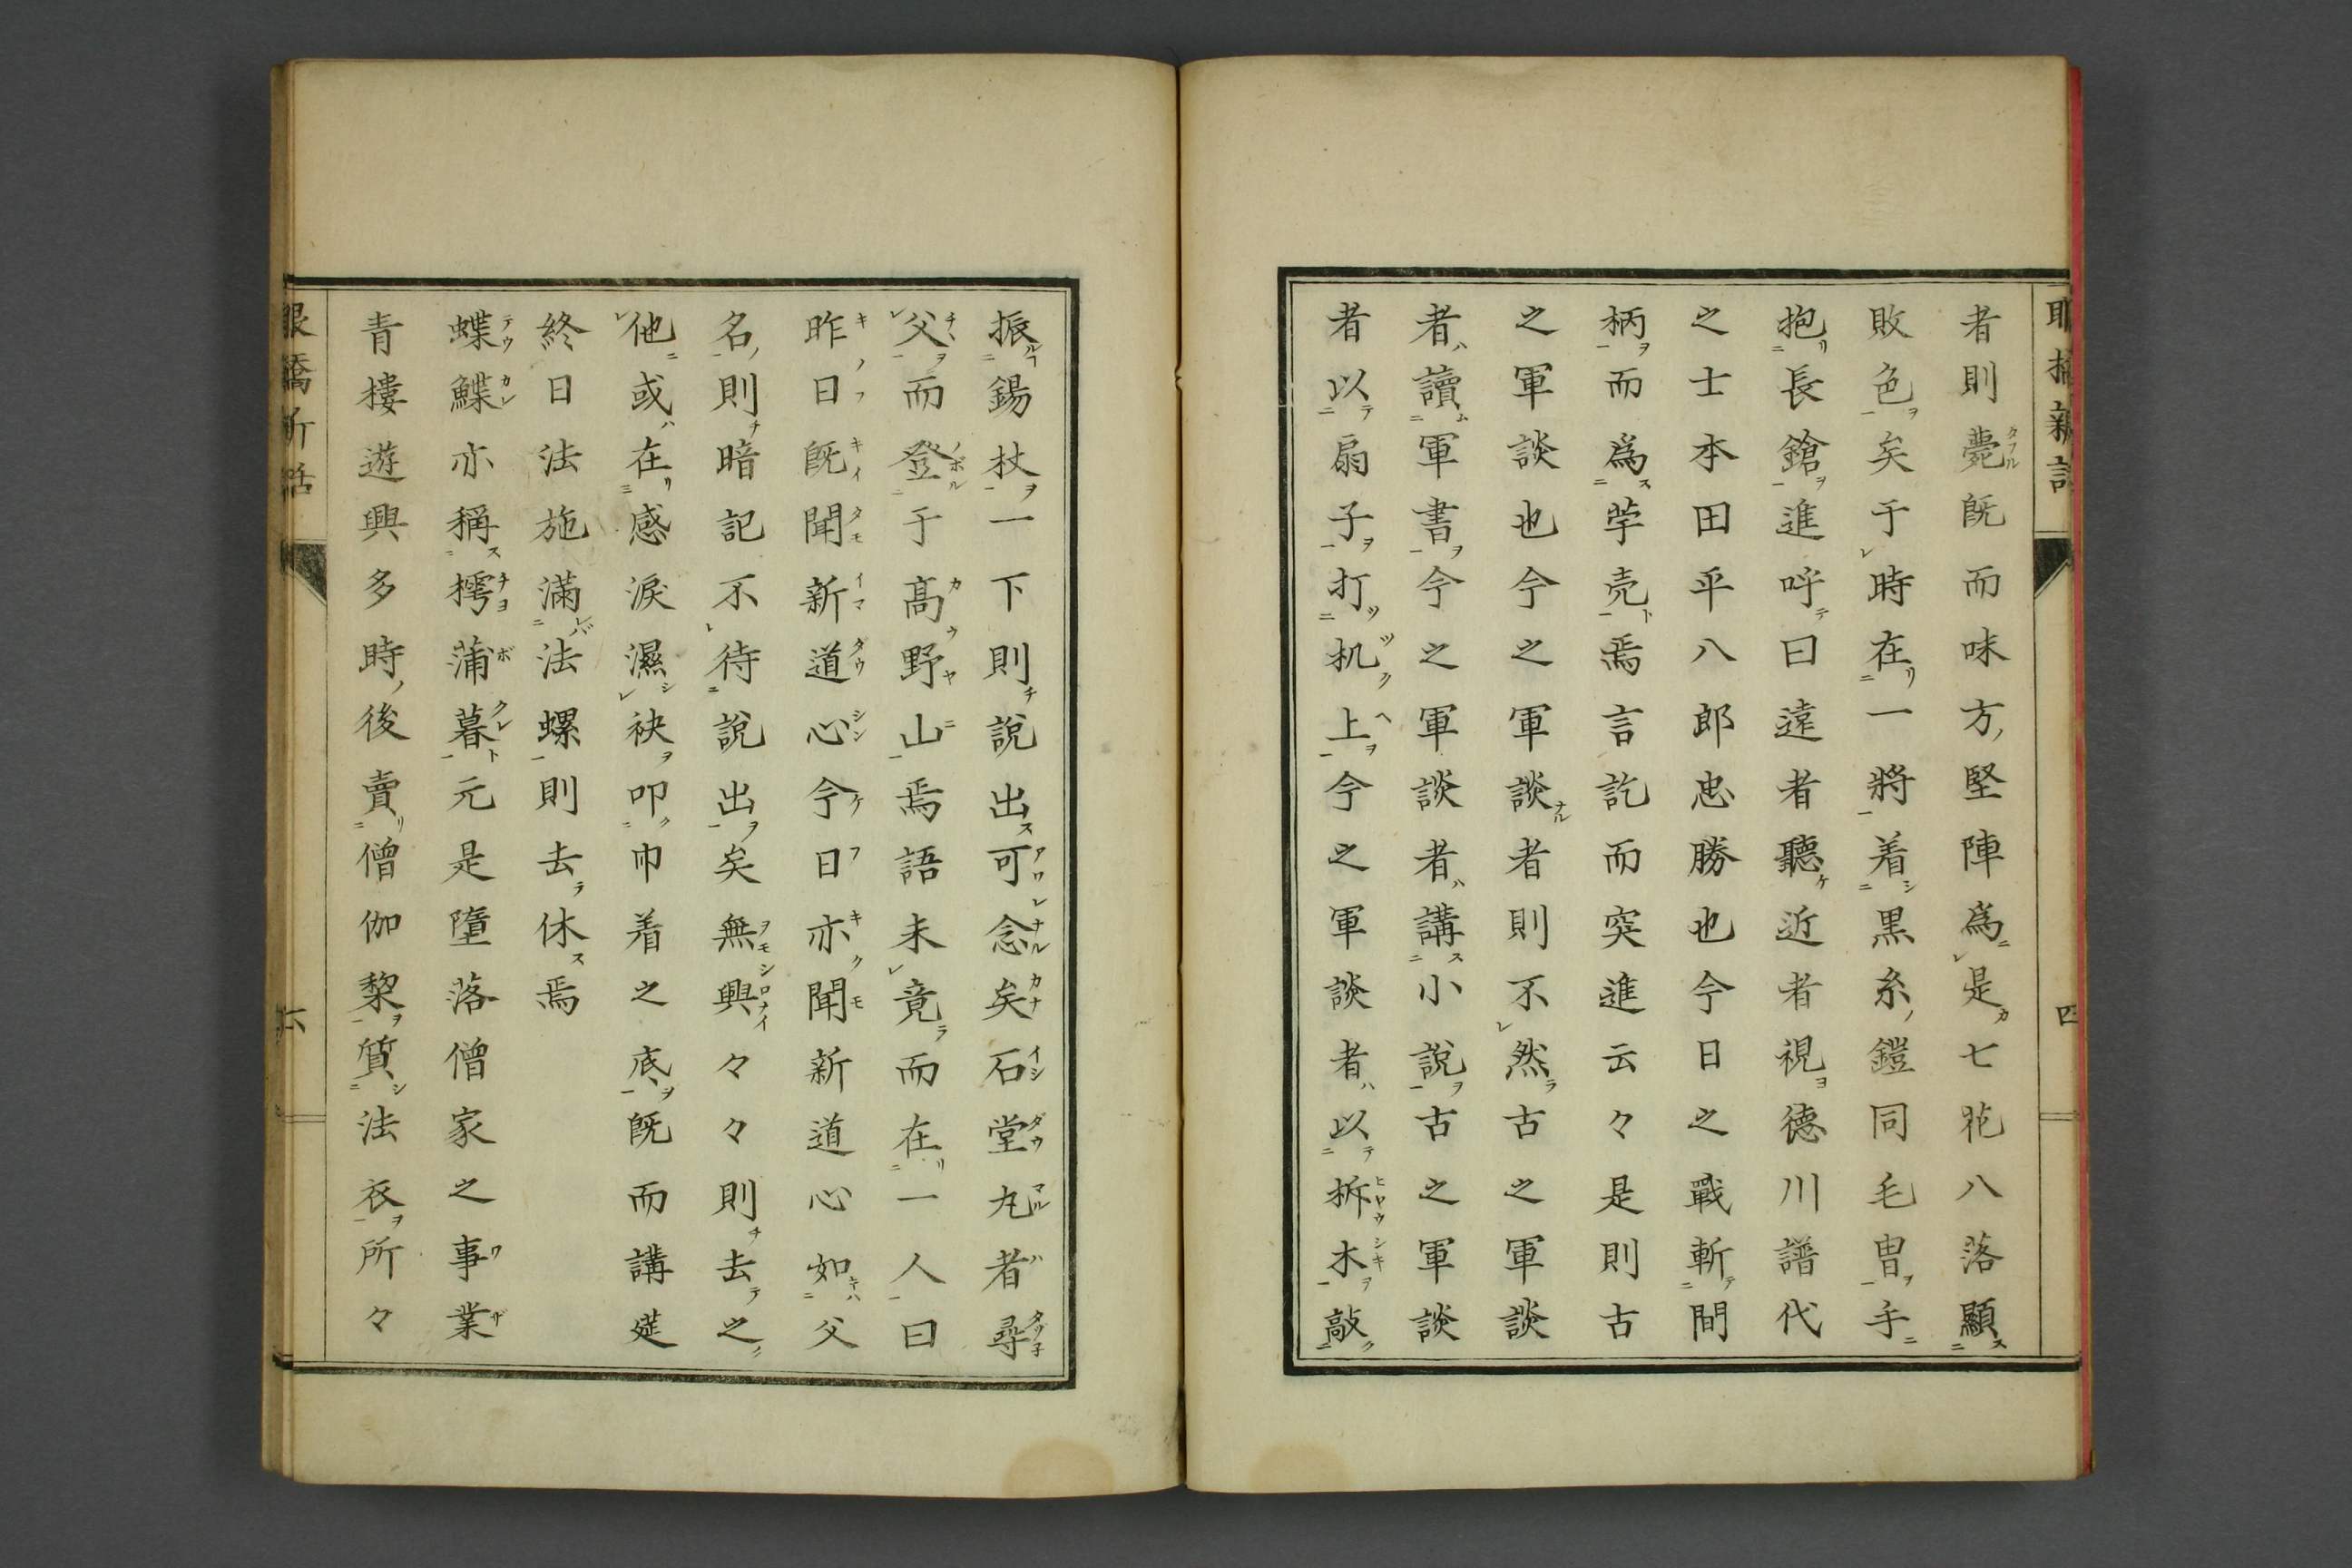 者則薨既而味方堅陣爲是七花八落顯
敗色矣于時在一將着黒糸鎧同毛冑手
抱長鎗進呼曰遠者聽近者視德川譜代
之士本田平八郎忠勝也今日之戰斬間
柄而爲芋売焉言訖而突進云々是則古
之軍談也今之軍談者則不然古之軍談
者讀軍書今之軍談者講小説古之軍談
者以扇子打机上今之軍談者以柝木敲
四
振錫杖一下則説出可念矣石堂丸者尋
父而登于髙野山焉語未竟而在一人曰
昨日既聞新道心今日亦聞新道心如父
名則暗記不待説出矣無興々々則去之
他或在感淚濕袂叩巾着之底既而講莚
終日法施滿法螺則去休焉
蝶鰈亦稱樗蒲暮元是墮落僧家之事業
青樓遊興多時後賣僧伽黎質法衣所々
六